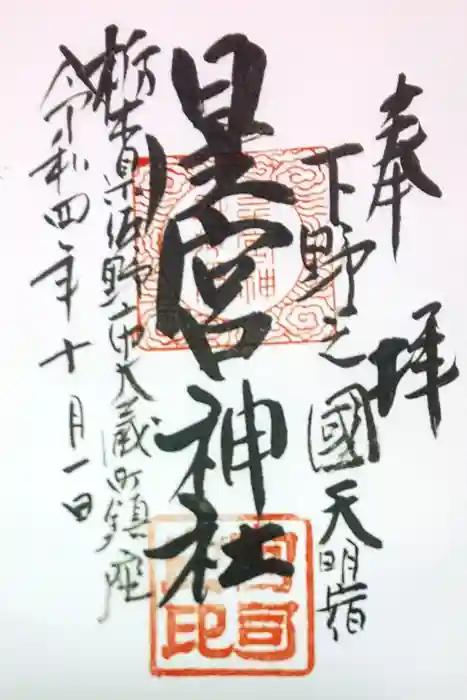 奉拝
下野之國天明宿
星宮神社
栃木県佐野市大蔵町鎮座
令和四年十月一日
宮司之印